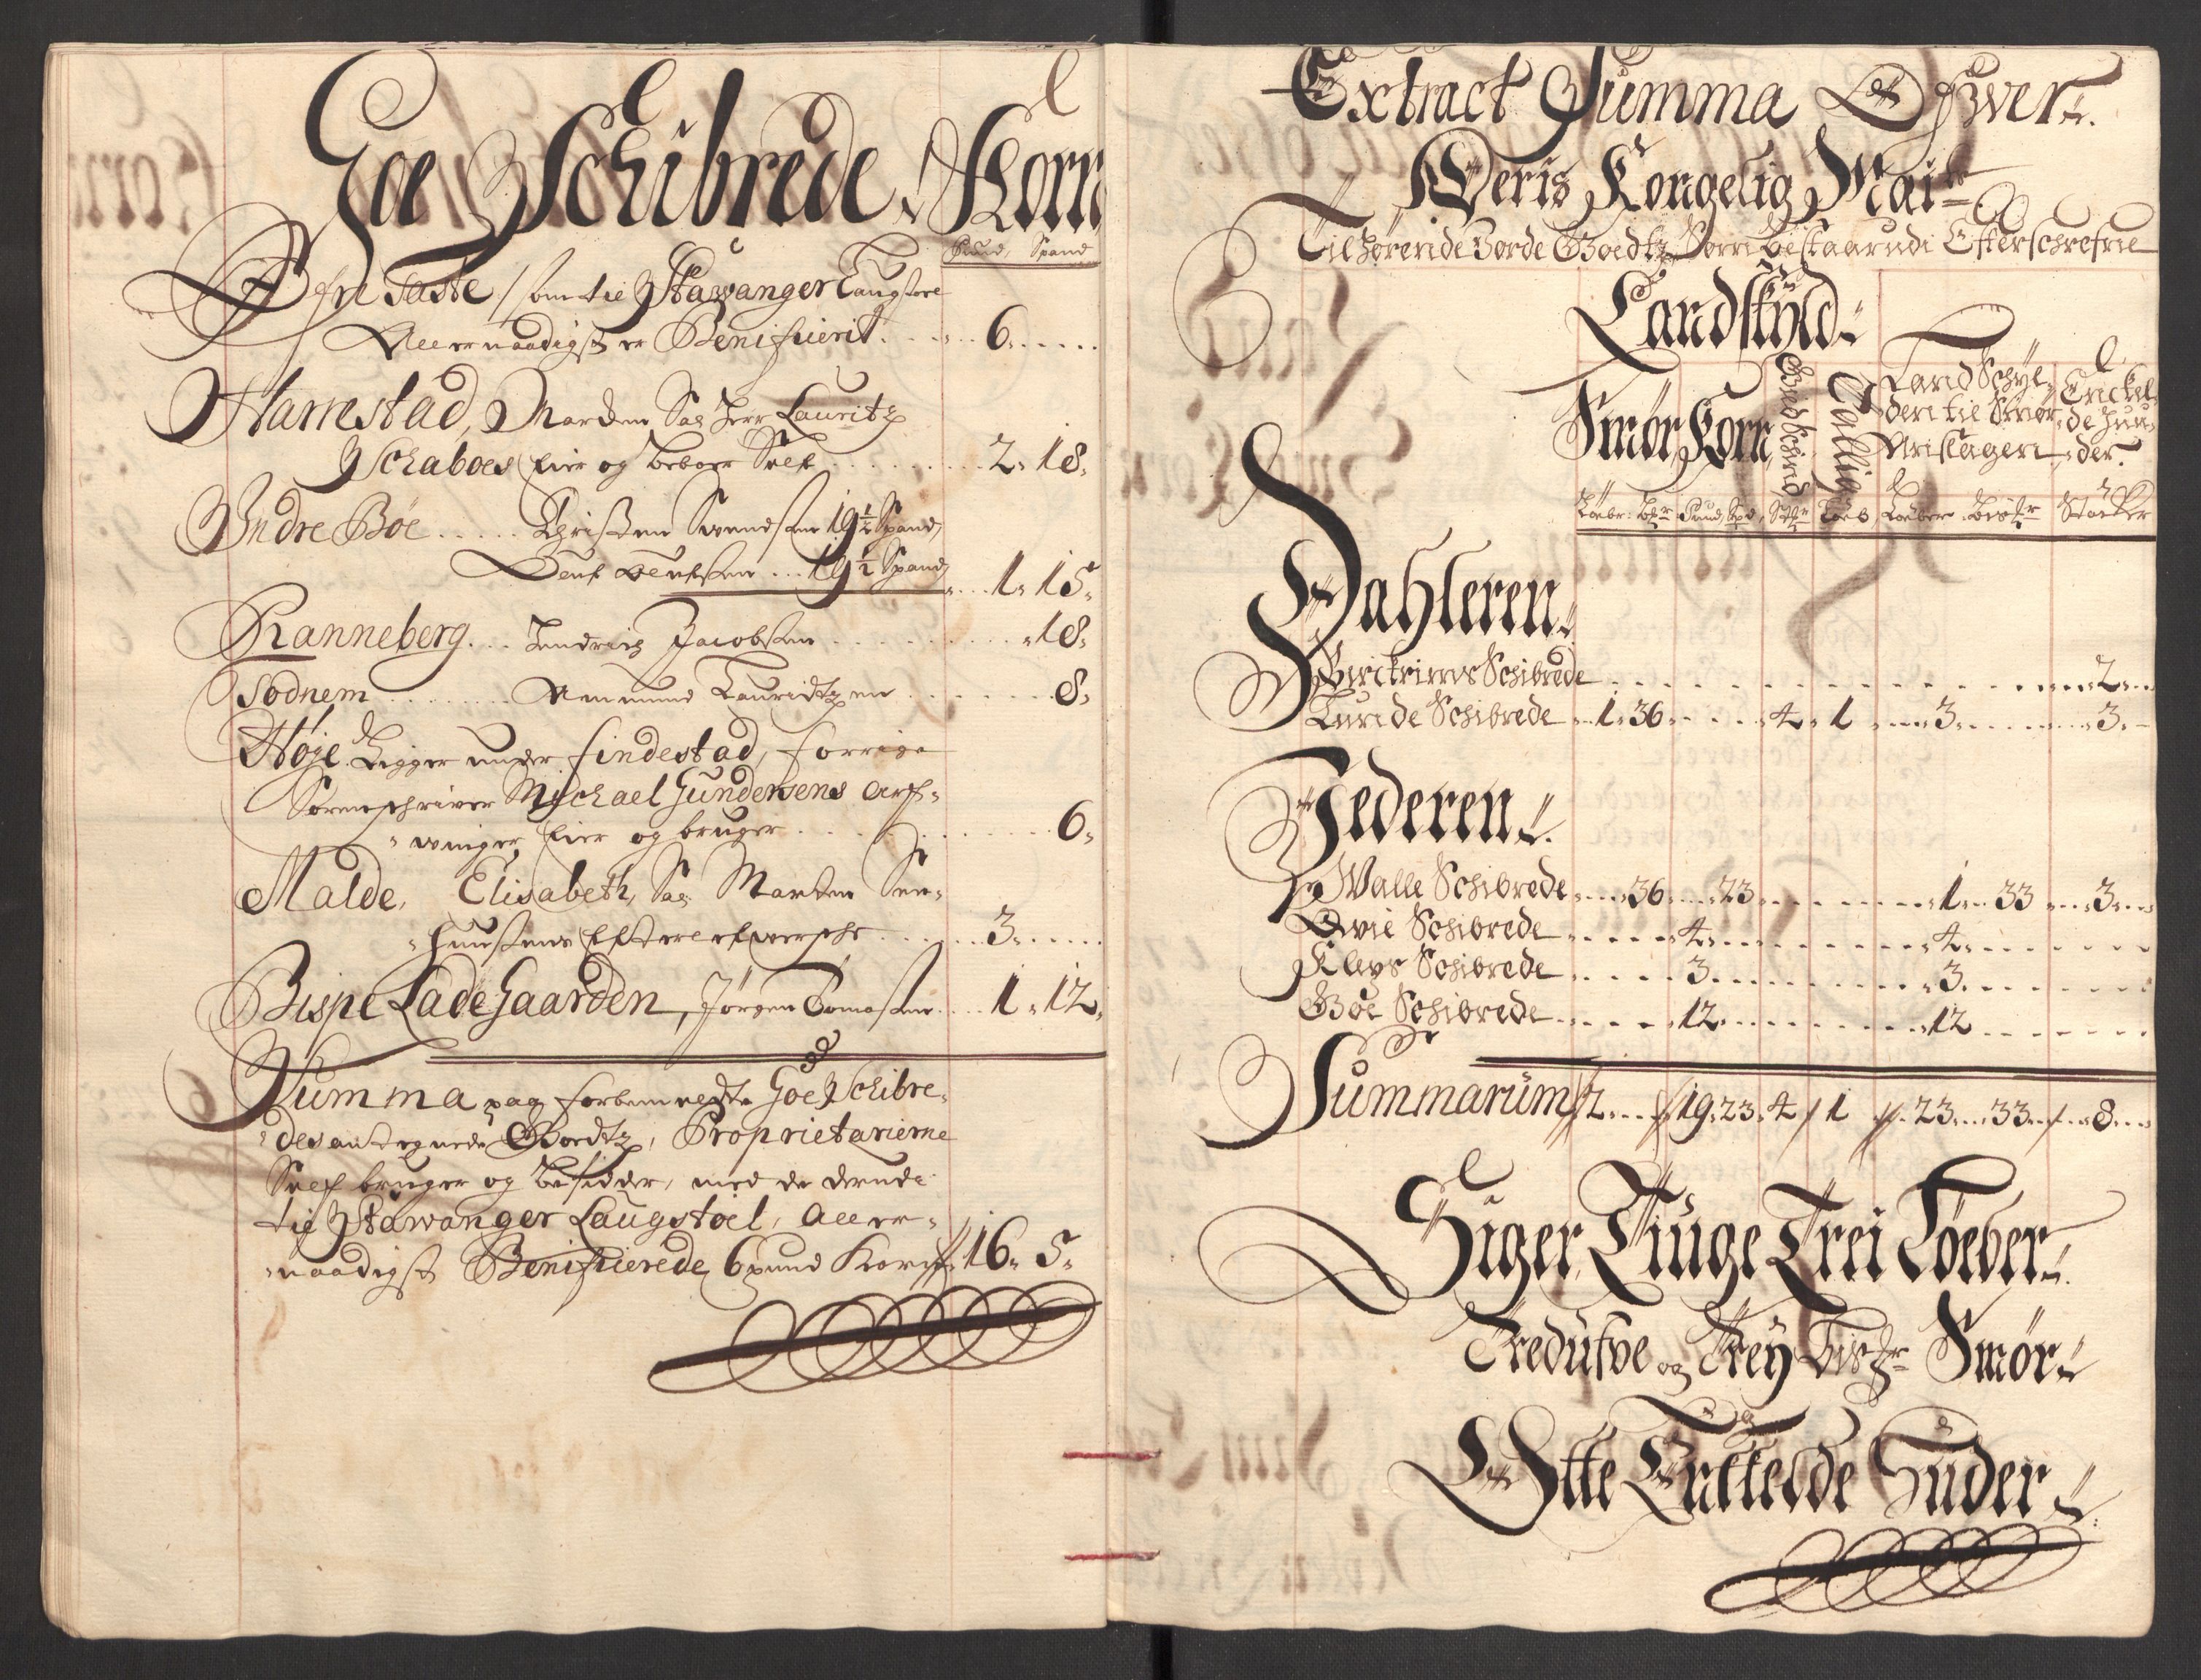 Goe Schibrede. Korn
Pund, Spand
Øfre Taste / som til Stawanger Laugstoel
Allernaadigst er Benificierit. 6.
Harrestad, Marthen Sal Herr Lauritz
Schaboes Eier og beboer Self 2. 18.
Indre Bøe Christen Swendsen 19½ Spand,
Oluf Olufsen 19½ Spand, 1. 15.
Ranneberg. Hendrich Jacobsen 18.
Todnem Ammund Lauridtzen 8.
Høje Ligger under Findestad, forrige
Sorenschriver Michael Gundersens Arf-
winger Eier og bruger 6.
Malde, Elisabeth, Sal Marthen
Efterlefwersche 3.
Bispe Ladegaarden, Jørgen Tomasen 1. 12.
Summa paa forbemeldte Goe Schibre-
des antegnede Goedtz, Proprietarierne
Self bruger og besidder, med de derudi
til Stawanger Laugstoel, Aller-
naadigst Benificierede 6 pund Korn 16. 5.
Extract Summa Ofwer
Deris Kongelig Mait
Tilhørende Jorde Goedtz Som bestaar udi Efterschrefne
Landskyld
Smør Korn Gied Schind Tallig Land Schyl-
den til Smør
Anslagen Enckel-
de Huu-
der.
Løeber Pund, Spd, Løeber Stöcker
Dahleren
Birckrims Schibrede 2
Lunde Schibrede 1. 36 4. 1 3. 3.
Jederen
Walle Schibrede 36 23 1 33 3.
Qvie Schibrede 4. 4.
Kleps Schibrede 3. 3.
Goe Schibrede 12 12
Summarum 2. 19. 23. 4 / 1 23. 33. 8.
Siger, Tiuge Trei Løeber
Tredufve og Trey Smør
og
Otte Enckelde Huder